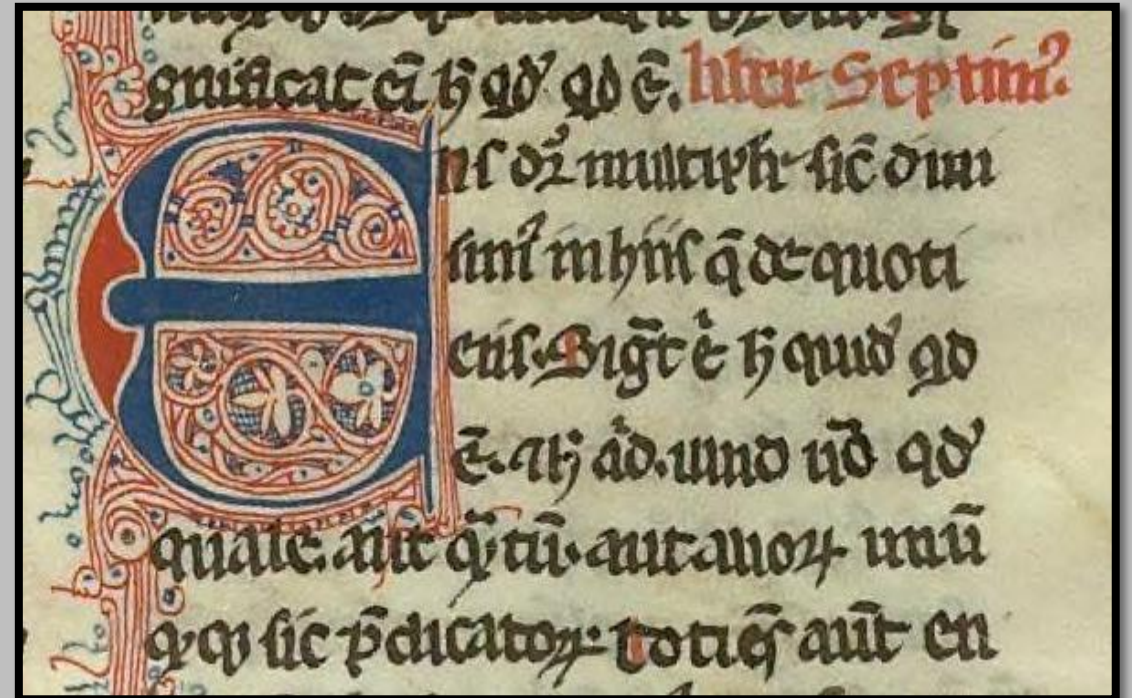 gnificat eī h̄ qd' qd ē. liber Septimꝰ
Ens dr̄ multiplr sic̄ diui
simꝰ in hiis q̄ de quoti
ens. Sigt̄ .n. h̄ quid qd
ē. ⁊ h̄ ad. uiuo ū qd'
quale. aut q̄tū. aut alioꝝ unū
qꝫ sic p̄dicatoꝝ. toties aūt en